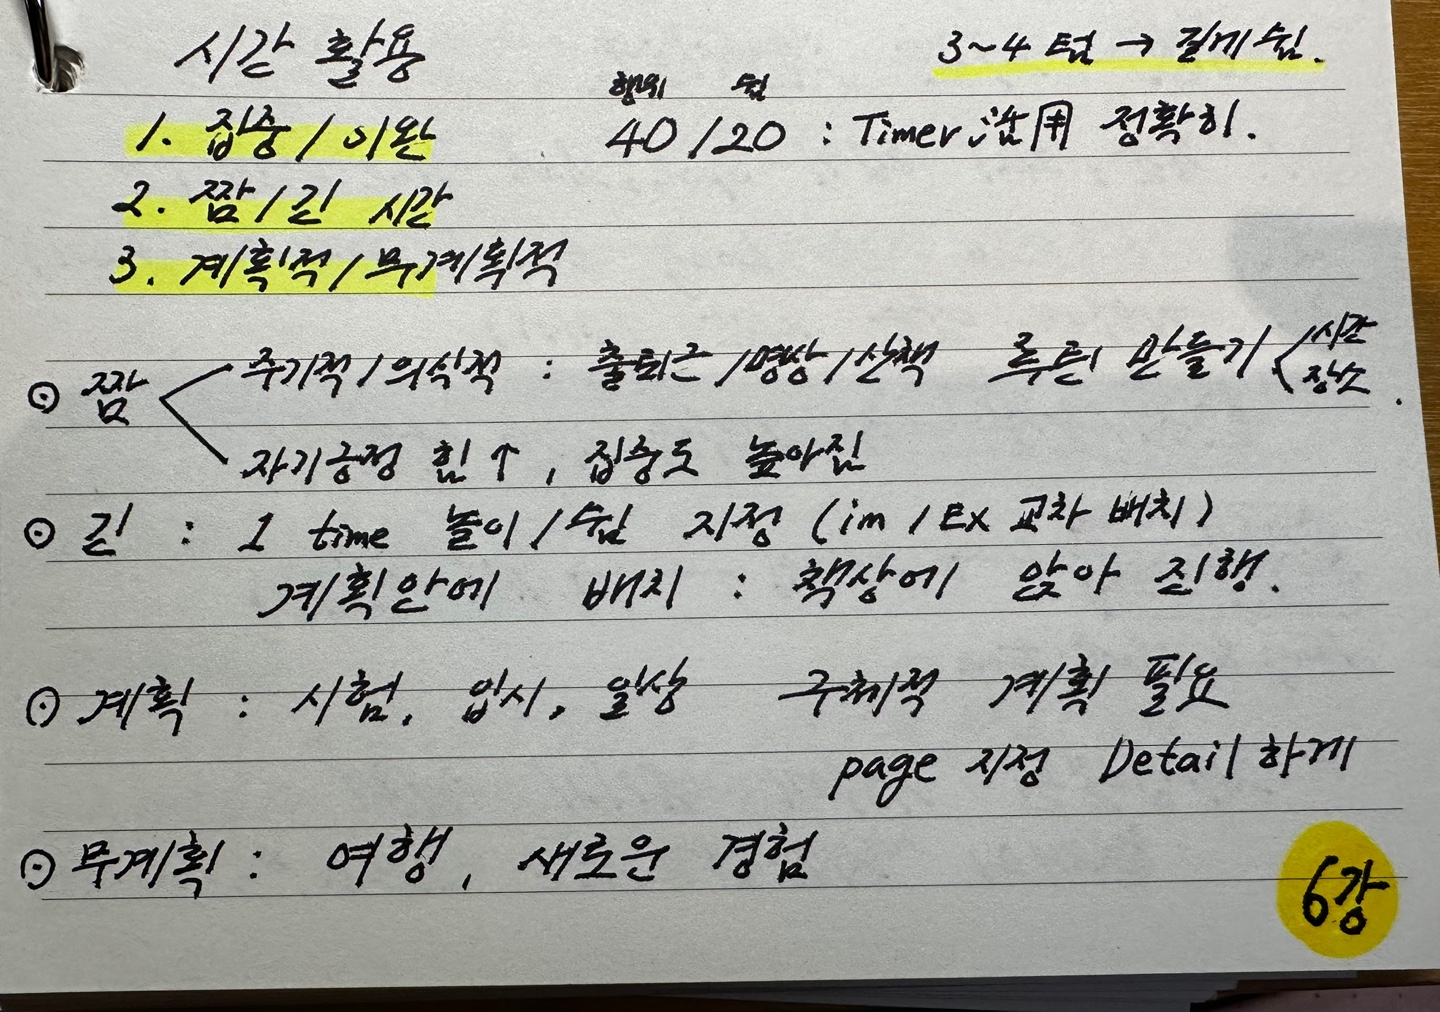 시간 활용
3~4 텀 → 길게 쉼.
행위 쉼
1. 집중 / 이완 40 / 20 : Timer 活用 정확히.
2. 짬 / 긴 시간
3. 계획적 / 무계획적
⊙ 짬 주기적 / 의식적 : 출퇴근 / 명상 / 산책 루틴 만들기 < 시간 장소 .
자기긍정 힘 ↑ , 집중도 높아짐
⊙ 긴 : 1 time 놀이 / 쉼 지정 (im / Ex 교차 배치)
계획안에 배치 : 책상에 앉아 진행.
⊙ 계획 : 시험, 입시, 일상 구체적 계획 필요
page 지정 Detail 하게
⊙ 무계획 : 여행, 새로운 경험
6강